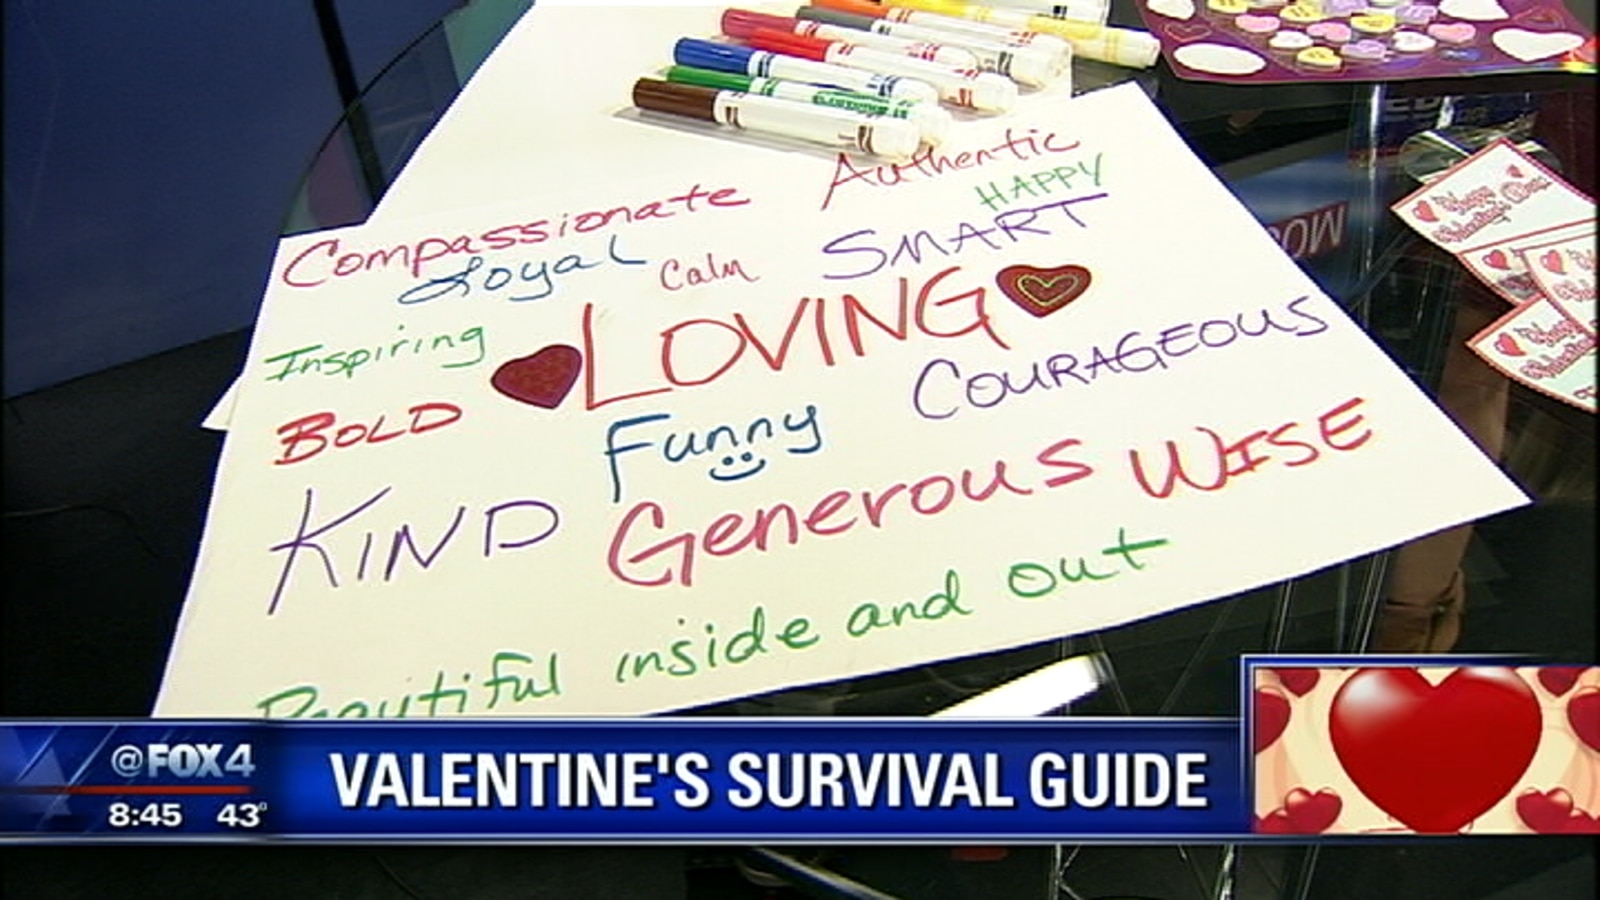 Authentic
Compassionate
HAPPY
Loyal Calm SMART
Inspiring LOVING
BOLD Funny COURAGEOUS
KIND Generous WISE
Beautiful inside and out
Happy
Valentine's Day!
@FOX4
8:45 43°
VALENTINE'S SURVIVAL GUIDE